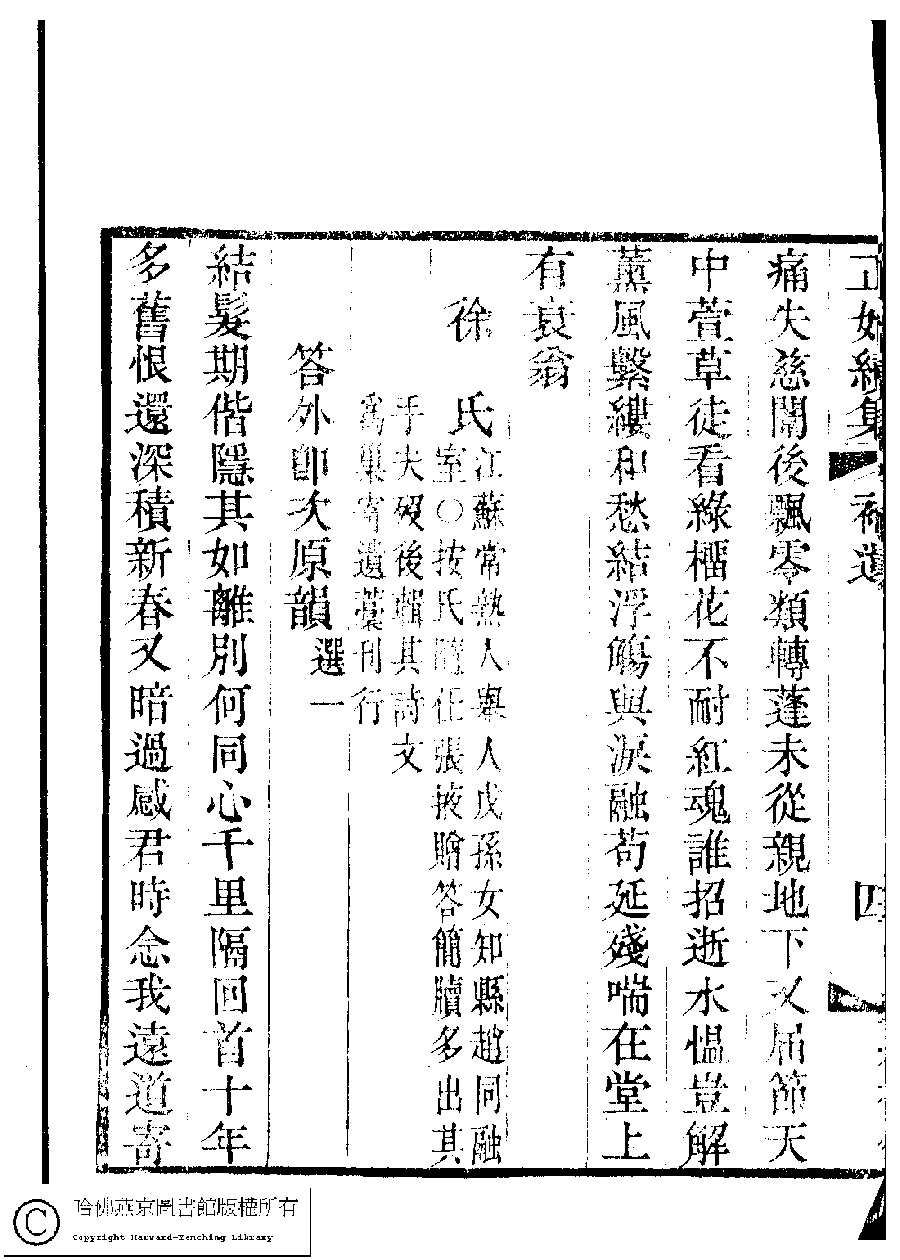 正始續集 補遺 四
痛失慈闈後飄零類轉蓬未從親地下又屆節天
中萱草徒看綠榴花不耐紅魂誰招逝水慍豈解
薰風繫縷和愁結浮觴與淚融苟延殘喘在堂上
有衰翁
徐氏
江蘇常熟人舉人戊孫女知縣趙同融
室○按氏隨任張掖贈答簡牘多出其
手夫歿後輯其詩文
爲巢寄遺藁刊行
答外卽次原韻選一
結髮期偕隱其如離別何同心千里隔回首十年
多舊恨還深積新春又暗過感君時念我遠道寄
哈佛燕京圖書館版權所有
Copyright Harvard-Yenching Library